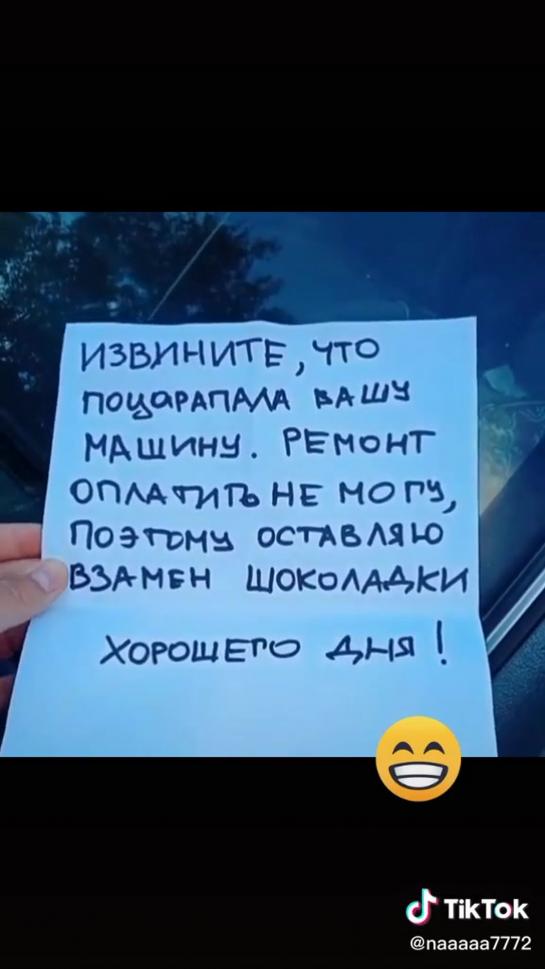 ИЗВИНИТЕ, ЧТО
ПОЦАРАПАЛА ВАШУ
МАШИНУ. РЕМОНТ
ОПЛАТИТЬ НЕ МОГУ,
ПОЭТОМУ ОСТАВЛЯЮ
ВЗАМЕН ШОКОЛАДКИ
ХОРОШЕГО ДНЯ!
TikTok
@naaaaa7772